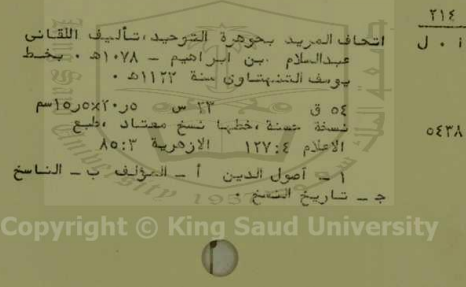 ٢١٤
أ . ل اتحاف المريد بجوهرة التوحيد ،تأليف اللقانى
عبدالسلام بن ابراهيم - ١٠٧٨ه . بخط
يوسف التتهتاوى سنة ١١٢٣ه .
٥٤ ق ٢٣ س ٥ر٢٠×٥ر١٥سم
٥٤٣٨ نسخة حسنة ،خطها نسخ معتاد ،طبع
الاعلام ١٢٧:٤ الازهرية ٨٥:٣
١ - أصول الدين أ - المؤلف ب - الناسخ
ج - تاريخ النسخ .
1957
Copyright © King Saud University